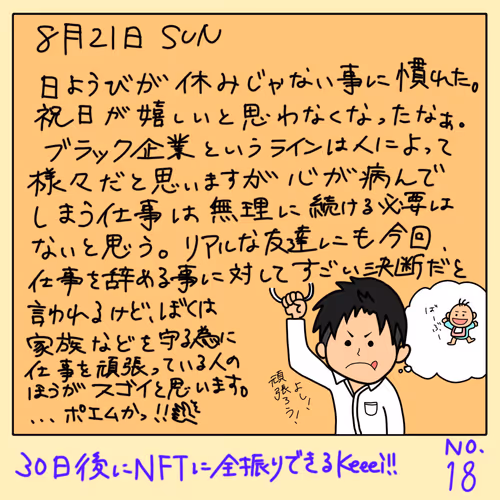 8月21日 SUN
日ようびが休みじゃない事に慣れた。
祝日が嬉しいと思わなくなったなぁ。
ブラック企業というラインは人によって
様々だと思いますが心が病んで
しまう仕事は無理に続ける必要は
ないと思う。リアルな友達にも今回、
仕事を辞める事に対してすごい決断だと
言われるけど、ぼくは
家族などを守る為に
仕事を頑張っている人の
ほうがスゴイと思います。
...ポエムかっ!!
ばーぶー
よし!
頑張ろう!
30日後にNFTに全振りできるKeeei!!
NO.
18